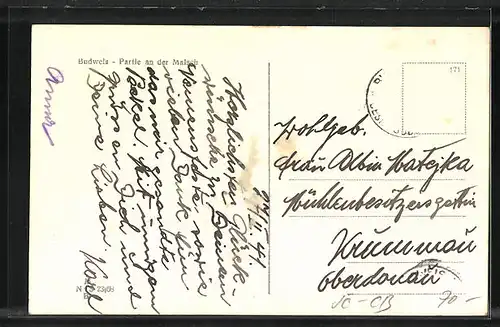 Budweis - Partie an der Maltsch
27.II.41.
Herzlichsten Glück-
wünsche zu Deinem
Namensfeste, sowie
vielen Dank für
das mir gesandte
Paket. Mit innigen
Grüssen Dich und
Deine Lieben. Karl
Anna
Wohlgeb.
Frau Albin Matejka
Mühlenbesitzersgattin
Krummau
Oberdonau
171
JC-CB
70.-